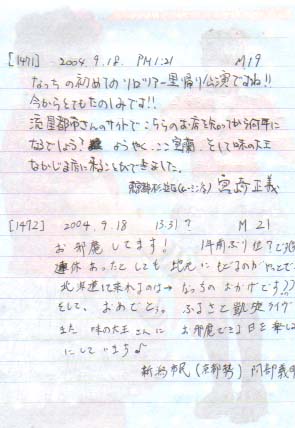 [1471] 2004.9.18. PM1:21 M19
なっちの初めてのソロツアー里帰り公演ですね!!
今からとてもたのしみです!!
流星都市さんのサイトでこちらのお店を知ってから何年に
なるでしょう? ようやくここ室蘭、そして味の大王
に来ることができました。
宮崎正義
[1472] 2004.9.18 13:31? M21
お邪魔してます! 1年前ぶり位
連休あったとしても 地元にもどるのがやっとで
北海道に来れるのは→なっちのおかげです))
そして、おめでとう。ふるさと凱旋ライヴ
また 味の大王さんに お邪魔できる日を楽しみ
にしています♪
新潟市民(京都勢) 阿部義